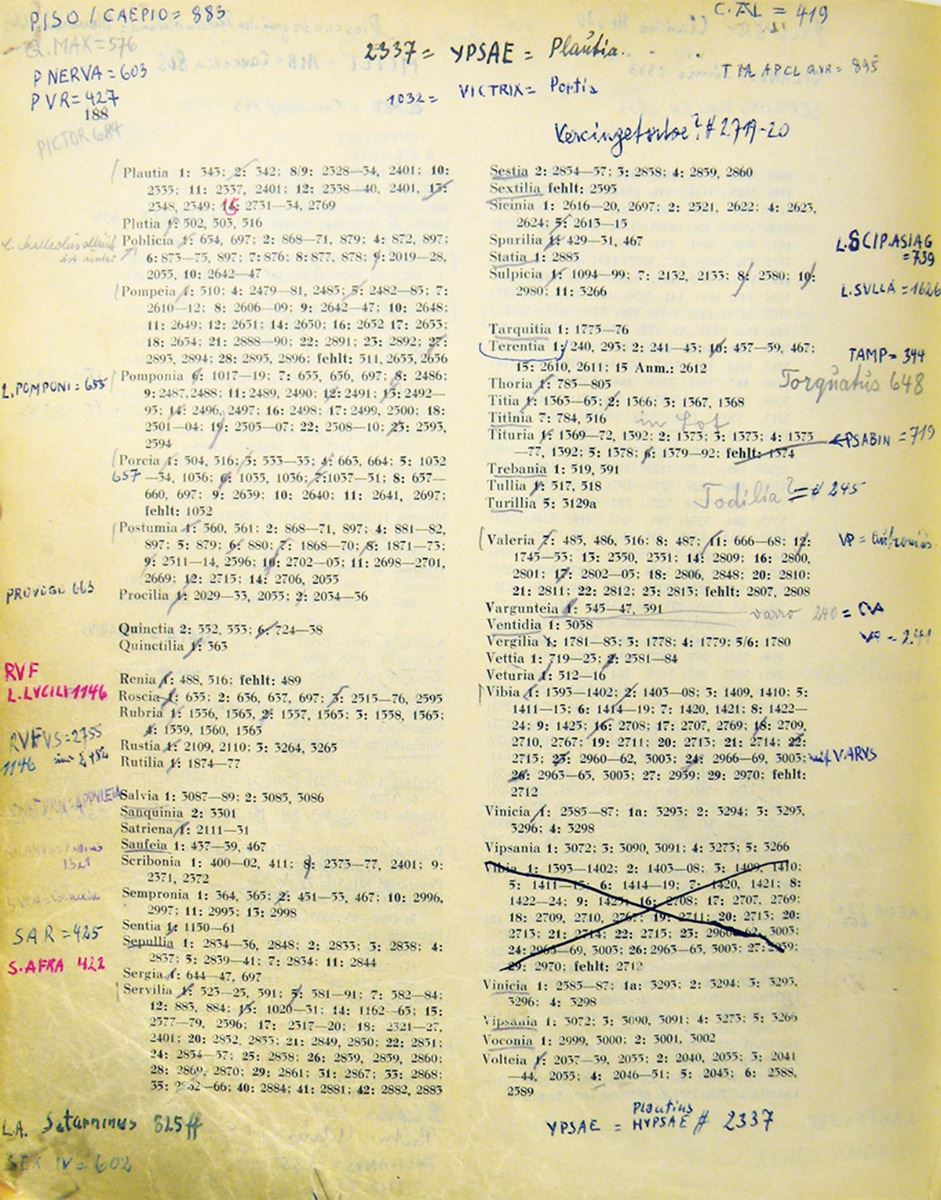 PISO / CAEPIO = 883
Q. MAX = 576
P NERVA = 603
P VR = 427
188
PICTOR 684
2337 = YPSAE = Plautia.
1032 = VICTRIX = Portia
C. AL = 419
Vercingetorix? # 2719-20
Plautia 1: 343; 2: 342; 8/9: 2328—34, 2401; 10:
2335; 11: 2337, 2401; 12: 2338—40, 2401, 13:
2348, 2349; 14: 2731—34, 2769
Plutia 1: 502, 503, 516
Poblicia 1: 654, 697; 2: 868—71, 879; 4: 872, 897;
6: 873—75, 897; 7: 876; 8: 877, 878; 9: 2019—28,
2055, 10: 2642—47
Pompeia 1: 510; 4: 2479—81, 2485; 5: 2482—85; 7:
2610—12; 8: 2606—09; 9: 2642—47; 10: 2648;
11: 2649; 12: 2651; 14: 2650; 16: 2652 17: 2653;
18: 2654; 21: 2888—90; 22: 2891; 23: 2892; 27:
2893, 2894; 28: 2895, 2896; fehlt: 511, 2655, 2656
L. POMPONI = 655
Pomponia 6: 1017—19; 7: 655, 656, 697; 8: 2486;
9: 2487, 2488; 11: 2489, 2490; 12: 2491; 13: 2492—
95; 14: 2496, 2497; 16: 2498; 17: 2499, 2500; 18:
2501—04; 19: 2505—07; 22: 2508—10; 23: 2593,
2594
Porcia 1: 504, 516; 3: 533—35; 4: 663, 664; 5: 1032
657 —34, 1036; 6: 1035, 1036; 7: 1037—51; 8: 657—
660, 697; 9: 2639; 10: 2640; 11: 2641, 2697;
fehlt: 1052
Postumia 1: 560, 561; 2: 868—71, 897; 4: 881—82,
897; 5: 879; 6: 880; 7: 1868—70; 8: 1871—73;
9: 2511—14, 2596; 10: 2702—05; 11: 2698—2701,
2669; 12: 2715; 14: 2706, 2055
PROVOCO 663
Procilia 1: 2029—33, 2055; 2: 2034—36
Quinctia 2: 552, 553; 6: 724—38
Quinctilia 1: 563
RVF
L. LVCILI 1146
Renia 1: 488, 516; fehlt: 489
Roscia 1: 635; 2: 636, 637, 697; 3: 2515—76, 2595
Rubria 1: 1556, 1565, 2: 1557, 1565; 3: 1558, 1565;
4: 1559, 1560, 1565
RVFVS = 2755
1146
Rustia 1: 2109, 2110; 3: 3264, 3265
Rutilia 1: 1874—77
Salvia 1: 3087—89; 2: 3085, 3086
Sanquinia 2: 3301
Satriena 1: 2111—31
Saufeia 1: 437—39, 467
Scribonia 1: 400—02, 411; 8: 2373—77, 2401; 9:
2371, 2372
Sempronia 1: 364, 365; 2: 451—53, 467; 10: 2996,
2997; 11: 2995; 13: 2998
SAR = 425
Sentia 1: 1150—61
Sepullia 1: 2834—36, 2848; 2: 2833; 3: 2838; 4:
2837; 5: 2839—41; 7: 2834; 11: 2844
S. AFRA 422
Sergia 1: 644—47, 697
Servilia 1: 523—25, 591; 5: 581—91; 7: 582—84;
12: 883, 884; 13: 1020—31; 14: 1162—63; 15:
2577—79, 2596; 17: 2317—20; 18: 2321—27,
2401; 20: 2852, 2853; 21: 2849, 2850; 22: 2851;
24: 2854—57; 25: 2858; 26: 2859, 2859, 2860;
28: 2869, 2870; 29: 2861; 31: 2867; 33: 2868;
35: 2862—66; 40: 2884; 41: 2881; 42: 2882, 2883
L.A. Saturninus 825 ff
SEX IV = 602
Sestia 2: 2854—57; 3: 2858; 4: 2859, 2860
Sextilia fehlt: 2595
Sicinia 1: 2616—20, 2697; 2: 2521, 2622; 4: 2623,
2624; 5: 2613—15
Spurilia 1: 429—31, 467
L. SCIP. ASIAG
= 739
Statia 1: 2885
Sulpicia 1: 1094—99; 7: 2132, 2133; 8: 2380; 10:
2980; 11: 3266
L. SVLLA = 1626
Tarquitia 1: 1775—76
Terentia 1: 240, 293; 2: 241—43; 10: 457—59, 467;
15: 2610, 2611; 15 Anm.: 2612
TAMP = 344
Torquatus 648
Thoria 1: 785—805
Titia 1: 1363—65; 2: 1366; 3: 1367, 1368
Titinia 7: 784, 516
Tituria 1: 1369—72, 1392; 2: 1373; 3: 1373; 4: 1375
—77, 1392; 5: 1378; 6: 1379—92; fehlt: 1374
PSABIN = 719
Trebania 1: 519, 591
Tullia 1: 517, 518
Turillia 5: 3129a
Todilia? = # 245
Valeria 7: 485, 486, 516; 8: 487; 11: 666—68; 12:
1745—53; 13: 2350, 2351; 14: 2809; 16: 2800,
2801; 17: 2802—05; 18: 2806, 2848; 20: 2810;
21: 2811; 22: 2812; 23: 2813; fehlt: 2807, 2808
Vargunteia 1: 545—47, 591
varro 240 = VA
Ventidia 1: 3058
Vergilia 1: 1781—83; 3: 1778; 4: 1779; 5/6: 1780
Vettia 1: 719—23; 2: 2581—84
Veturia 1: 512—16
Vibia 1: 1393—1402; 2: 1403—08; 3: 1409, 1410; 5:
1411—13; 6: 1414—19; 7: 1420, 1421; 8: 1422—
24; 9: 1425; 16: 2708; 17: 2707, 2769; 18: 2709,
2710, 2767; 19: 2711; 20: 2713; 21: 2714; 22:
2715; 23: 2960—62, 3003; 24: 2966—69, 3003;
26: 2963—65, 3003; 27: 2959; 29: 2970; fehlt:
2712
Vinicia 1: 2585—87; 1a: 3293; 2: 3294; 3: 3295,
3296; 4: 3298
Vipsania 1: 3072; 3: 3090, 3091; 4: 3273; 5: 3266
Vibia 1: 1393—1402; 2: 1403—08; 3: 1409, 1410;
5: 1411—13; 6: 1414—19; 7: 1420, 1421; 8:
1422—24; 9: 1425; 16: 2708; 17: 2707, 2769;
18: 2709, 2710, 2767; 19: 2711; 20: 2713; 20:
2713; 21: 2714; 22: 2715; 23: 2960—62, 3003;
24: 2966—69, 3003; 26: 2963—65, 3003; 27: 2959;
29: 2970; fehlt: 2712
Vinicia 1: 2585—87; 1a: 3293; 2: 3294; 3: 3295,
3296; 4: 3298
Vipsania 1: 3072; 3: 3090, 3091; 4: 3273; 5: 3266
Voconia 1: 2999, 3000; 2: 3001, 3002
Volteia 1: 2037—39, 2055; 2: 2040, 2055; 3: 2041
—44, 2055; 4: 2046—51; 5: 2045; 6: 2588,
2589
YPSAE = Plautius HYPSAE # 2337